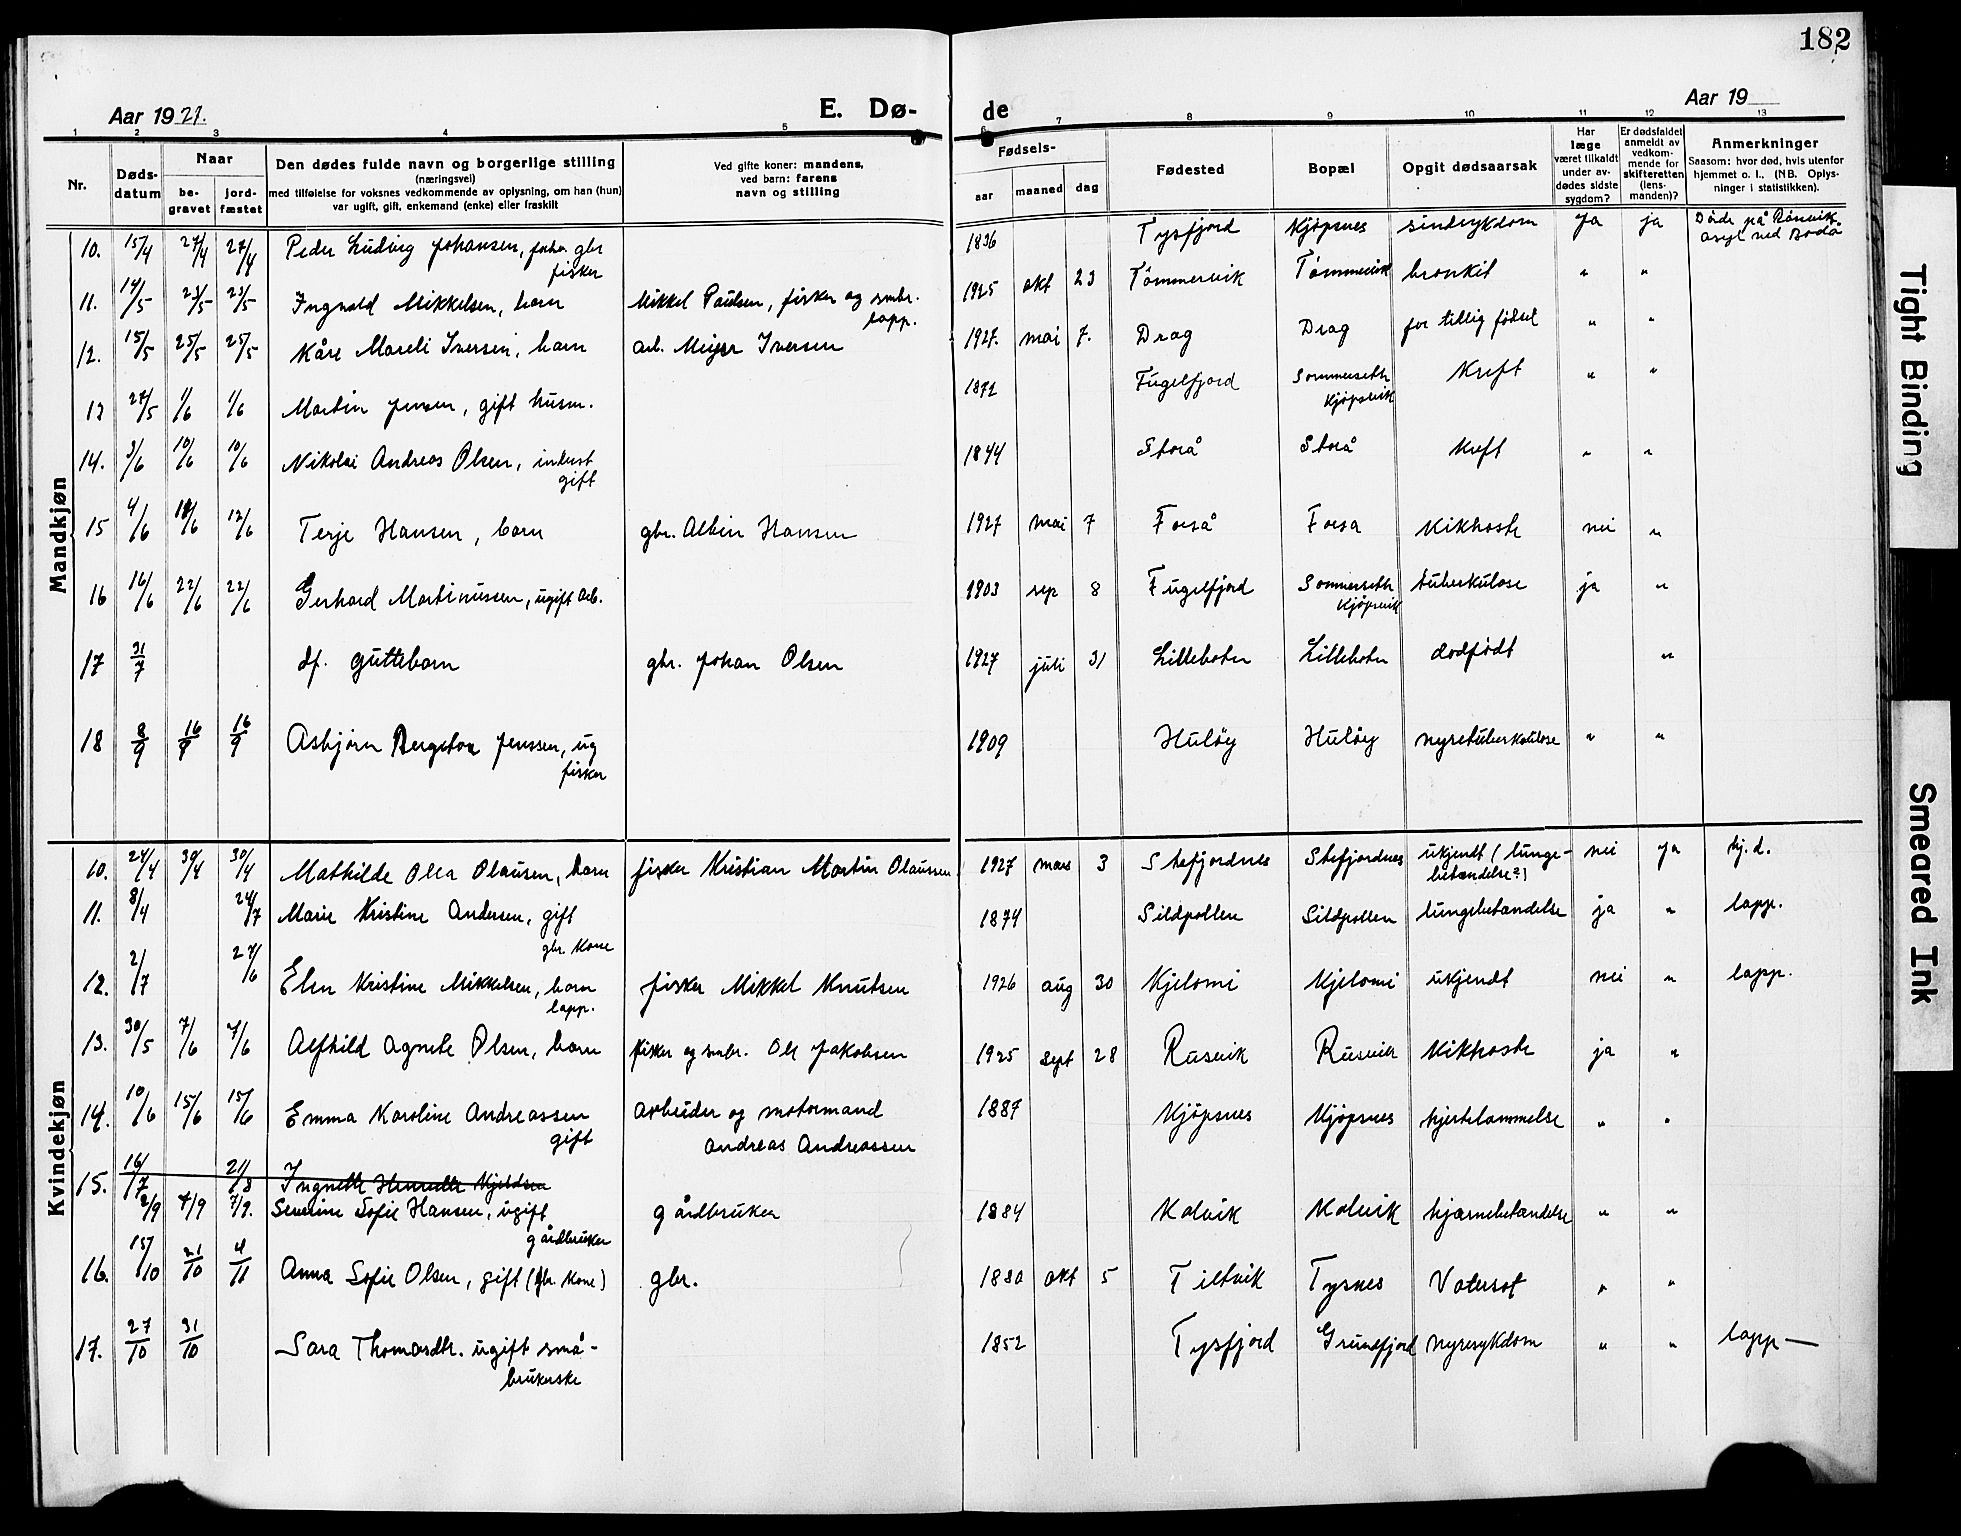 182
Aar 1927.
E. Dø-
de
Aar 19
1 2 3 4 5 6 7 8 9 10 11 12 13
Nr.
Døds-
datum
Naar
be-
gravet
jord-
fæstet
Den dødes fulde navn og borgerlige stilling
(næringsvei)
med tilføielse for voksnes vedkommende av oplysning, om han (hun)
var ugift, gift, enkemand (enke) eller fraskilt
Ved gifte koner: mandens,
ved barn: farens
navn og stilling
Fødsels-
aar
maaned
dag
Fødested
Bopæl
Opgit dødsaarsak
Har
læge
været tilkaldt
under av-
dødes sidste
sygdom?
Er dødsfaldet
anmeldt av
vedkom-
mende for
skifteretten
(lens-
manden)?
Anmerkninger
Saasom: hvor død, hvis utenfor
hjemmet o. l., (NB. Oplys-
ninger i statistikken).
Mandkjøn
10. 15/4 27/4 27/4 Peder Ludvig Johansen, forhv. gbr 1836 Tysfjord Kjöpsnes sindssykdom ja ja Döde på Rönvik
fisker asyl ved Bodö
11. 14/5 23/5 23/5 Ingvald Mikkelsen, barn Mikkel Paulsen, fisker og smbr. 1925 okt 23 Tömmervik Tömmervik bronkit " "
lapp.
12. 15/5 25/5 25/5 Kåre Mareli Iversen, barn arb. Meyer Iversen 1927. mai 7. Drag Drag for tidlig födsel " "
13 27/5 1/6 1/6 Martin Jensen, gift husm. 1872 Fugelfjord Sommerseth Kreft " "
Kjöpsvik
14. 3/6 10/6 10/6 Nikolai Andreas Olsen, inderst 1844 Storå Storå Kreft " "
gift
15 4/6 12/6 12/6 Terje Hansen, barn gbr. Albin Hansen 1927 mai 7 Forså Forsa Kikhoste nei "
16 16/6 22/6 22/6 Gerhard Martinussen, ugift arb. 1903 sep 8 Fugelfjord Sommerseth tuberkulose ja "
Kjöpsvik
17 31/7 df. guttebarn gbr. Johan Olsen 1927 juli 31 Lillebotn Lillebotn dødfødt "
18 8/9 16/9 16/9 Asbjørn Bergeton Jenssen, ug 1909 Hulöy Hulöy nyretuberkulose " "
fisker
Kvindekjøn
10. 24/4 30/4 30/4 Mathilde Olea Olausen, barn fisker Kristian Martin Olaussen 1927 mars 3 Stefjordnes Stefjordnes ukjendt (lunge- nei ja hj. d.
betændelse?)
11. 8/4 24/7 Marie Kristine Andersen, gift 1874 Sildpollen Sildpollen lungebetændelse ja " lapp.
gbr. kone
12. 2/7 27/6 Elen Kristine Mikkelsen, barn fisker Mikkel Knutsen 1926 aug 30 Kjelomi Kjelomi ukjendt nei " lapp.
lapp.
13. 30/5 7/6 7/6 Alfhild Agnete Olsen, barn fisker og smbr. Ole Jakobsen 1925 sept 28 Rusvik Rusvik Kikhoste ja "
14. 10/6 15/6 15/6 Emma Karoline Andreassen arbeider og motormand 1887 Kjöpsnes Kjöpsnes hjertelammelse " "
gift Andreas Andreassen
15. 16/7 21/8 Ingnette Henrette Kjeldsen
2/9 7/9 7/9. Severine Sofie Hansen, ugift gårdbruker 1884 Kalvik Kalvik hjærnebetændelse " "
gårdbruker
16. 15/10 21/10 4/11 Anna Sofie Olsen, gift (gbr kone) gbr. 1880 okt 5 Tiltvik Tysnes Vatersot " "
17. 27/10 31/10 Sara Thomasdtr. ugift små- 1852 Tysfjord Grundfjord nyresykdom " " lapp —
brukerske
Tight Binding
Smeared Ink